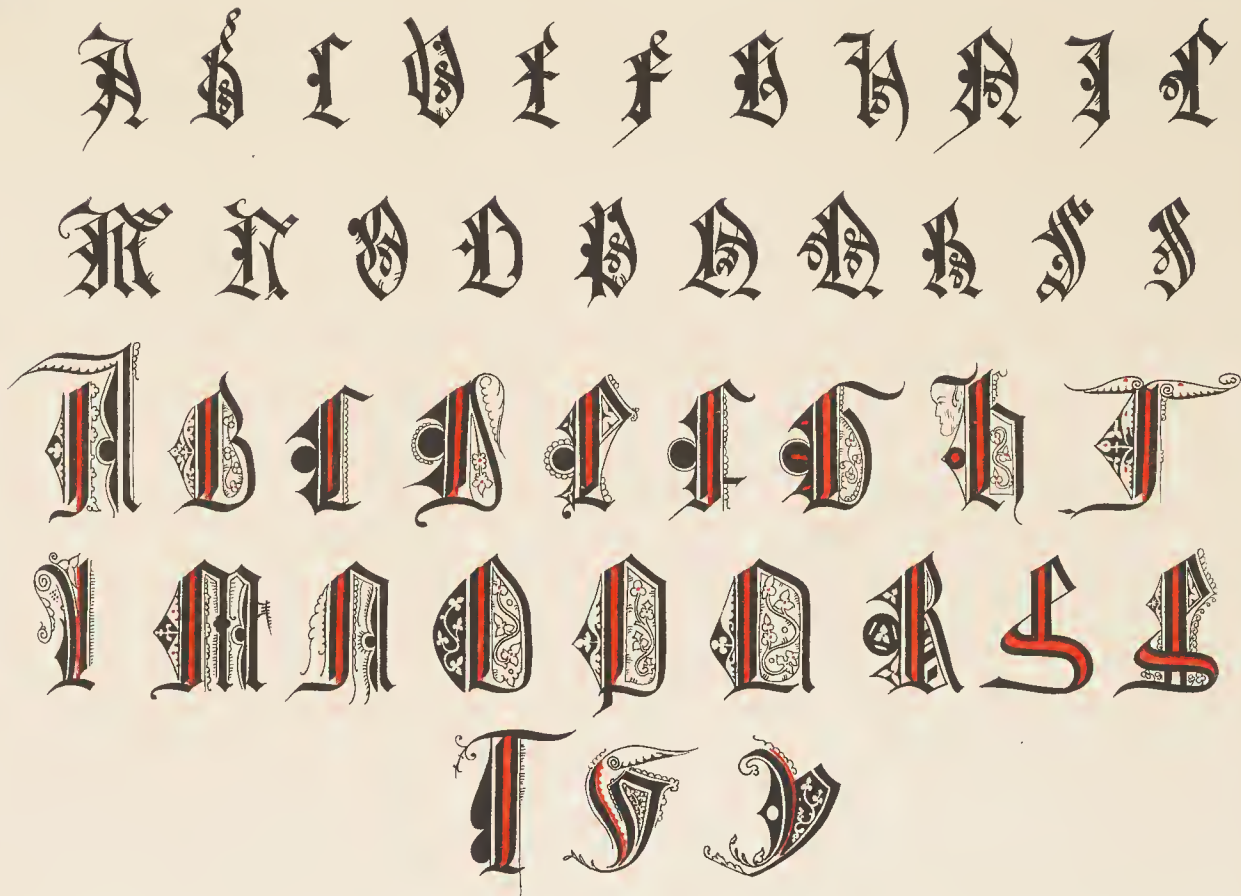 A B C D E F G H I L
M N O O P Q Q R S S
A B C D E F G H I
L M N O P Q R S S
T V